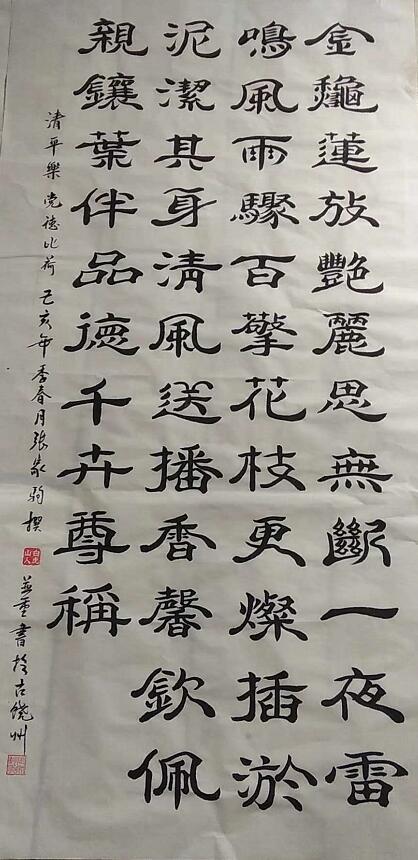 金龝蓮放艷麗思無斷一夜雷
鳴風雨驟百擎花枝更燦插淤
泥潔其身清風送播香馨欽佩
親鑲葉伴品德千卉尊稱
清平樂 党德比荷 己亥年季春月張家驹撰 並重書於古饒州